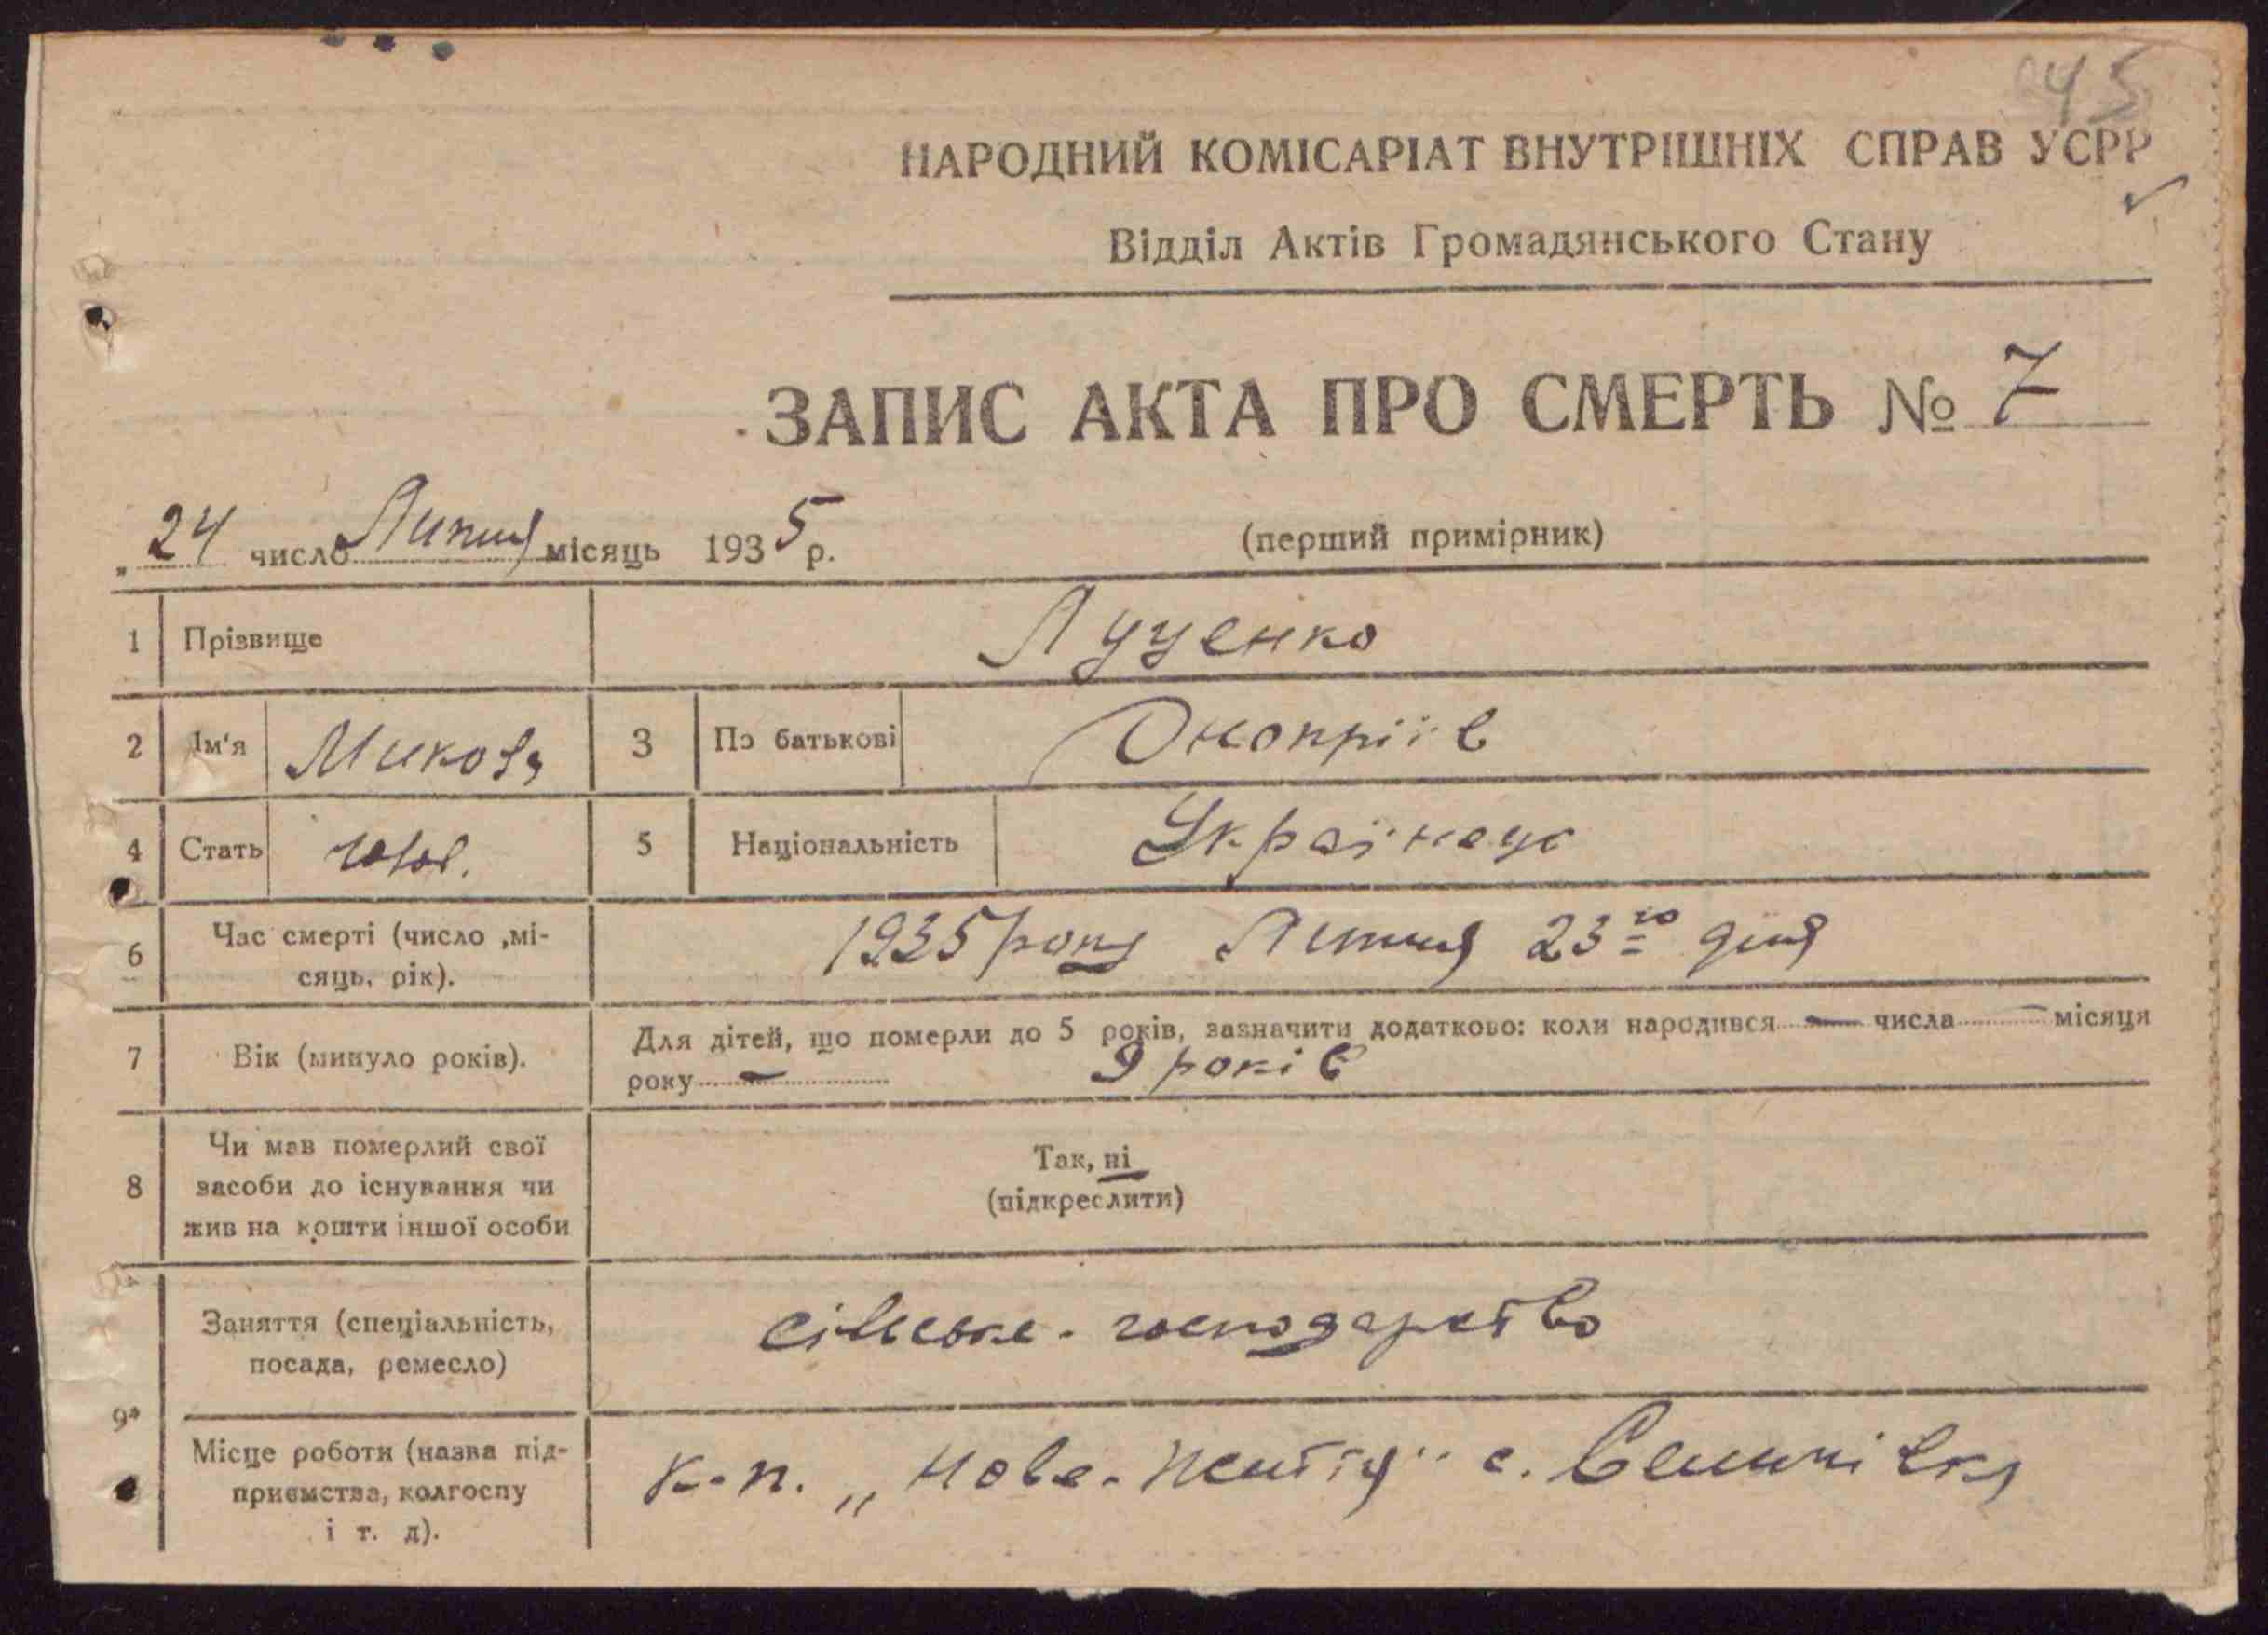 45
НАРОДНИЙ КОМІСАРІАТ ВНУТРІШНІХ СПРАВ УСРР
Відділ Актів Громадянського Стану
ЗАПИС АКТА ПРО СМЕРТЬ № 7
„ 24 число Липня місяць 1935 р. (перший примірник)
1 Прізвище Луценко
2 Ім'я Микола 3 По батькові Онопріїв
4 Стать чол. 5 Національність Українець
6 Час смерті (число ,мі-
сяць, рік).
1935 року Липня 23го дня
7 Вік (минуло років).
Для дітей, що померли до 5 років, зазначити додатково: коли народився — числа — місяця
року — 9 років
8 Чи мав померлий свої
засоби до існування чи
жив на кошти іншої особи
Так, ні
(підкреслити)
9 Заняття (спеціальність,
посада, ремесло)
сільське-господарство
Місце роботи (назва під-
приємства, колгоспу
і т. д).
к-п. „Нове-життя" с.